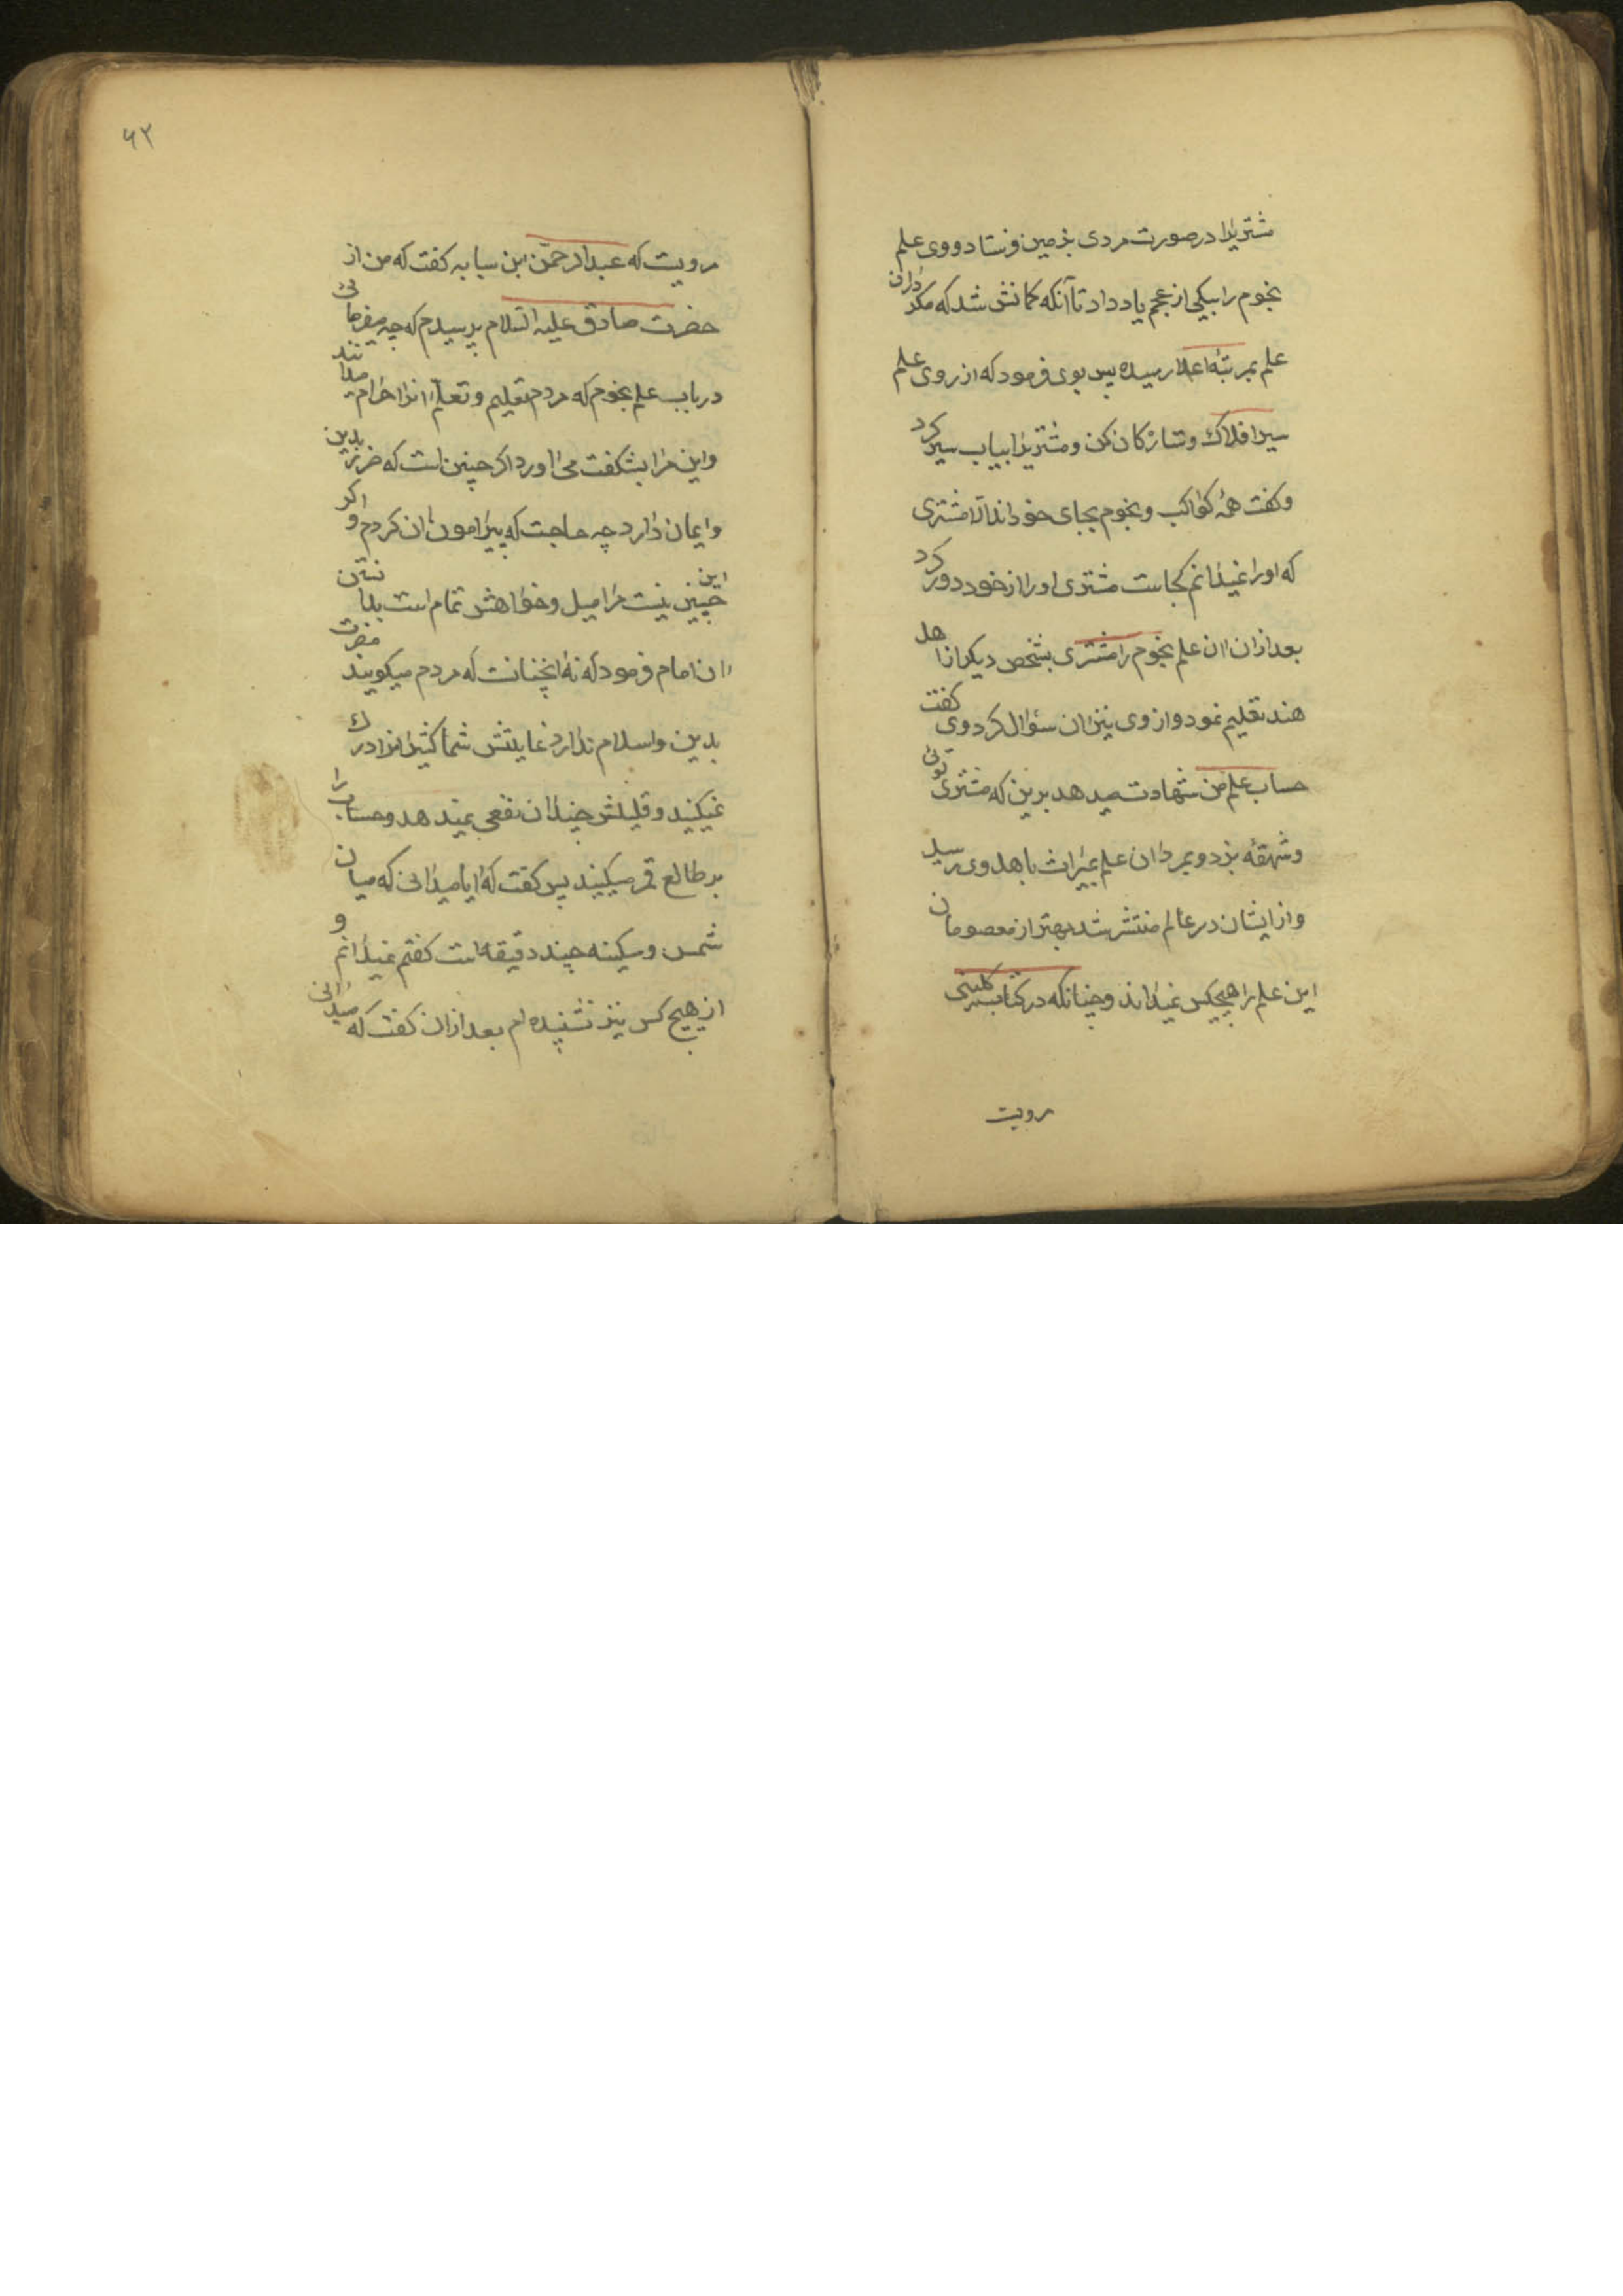 مشتریرا در صورت مردی بزمین فرستاد و وی علم
نجوم را بیکی از عجم یاد داد تا آنکه کمانش شد که مکر دران
علم بمرتبهٔ اعلا رسیده پس بوی فرمود که از روی علم
سیر افلاک و ستارکان کن و مشتریرا بیاب سیر کرد
و کفت همهٔ کواکب و نجوم بجای خود اند الا مشتری
که او را نمیدانم کجاست مشتری او را از خود دور کرد
بعد ازان ان علم نجوم را مشتری بشخص دیکر از اهل
هند تعلیم نمود و از وی نیز ان سؤال کرد وی کفت
حساب علم من شهادت میدهد برین که مشتری توئی
و شهقهٔ بزد و بمرد ان علم بمیراث باهل وی رسید
و از ایشان در عالم منتشر شد بهتر از معصومان
این علم را هیچکس نمیداند و چنانکه در کتاب کلینی
مرویت
۶۲
مرویت که عبد الرحمن ابن سیابه کفت که من از
حضرت صادق علیه السلام پرسیدم که چه میفرمائی
در باب علم نجوم که مردم تعلیم و تعلم انرا حرام میدانند
و این مرا بشکفت می اورد اکر چنین است که ضرر بدین
و ایمان دارد چه حاجت که پیرامون ان کردم و اکر
این چنین نیست مرا میل و خواهش تمام است بدانستن
ان امام فرمود که نه انچنانست که مردم میکویند مضرت
بدین و اسلام ندارد غایتش شما کثیرانرا درک
نمیکنید و قلیلش چندان نفعی نمیدهد و حساب را
بر طالع قمر میکنید پس کفت که ایا میدانی که میان
شمس و سکینه چند دقیقه است کفتم نمیدانم و
از هیچ کس نیز نشنیده ام بعد ازان کفت که میدانی